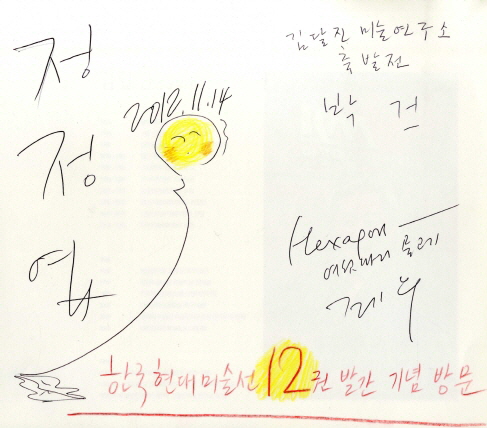 정정엽
2012.11.14
김달진 미술연구소
축 발전
박 건
Hexagon
한국현대미술선 12권 발간 기념 방문